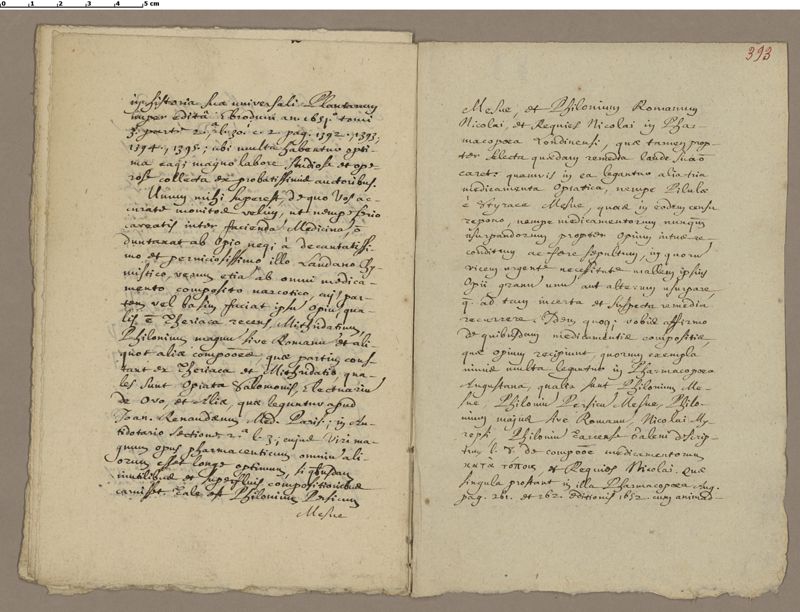 0 1 2 3 4 5 cm
in historia sua universali Plantarum
nuper edita Ebroduni an. 1651. tomi
3. parte 2.ᵃ l. 30. c. 2 pag. 1392., 1393,
1394., 1395; ubi multa habentur opti-
ma eaq; magno labore studiose et ope-
rose collecta ex probatissimis auctoribus.
Unum mihi superest, de quo Vos ac-
curate monitos velim, ut nempe serio
caveatis inter faciendā Medicinā,
duntaxat ab Opio neq; à decantatissi-
mo et perniciosissimo illo Laudano Chy-
mistico, verum etiā ab omni medica-
mento composito narcotico, cuj; par-
tem vel basim faciat ipsū Opiū, qua-
lis ē Theriaca recens, Mithridatium,
Philonium magnū sive Romanū et ali-
quot aliæ compoōes, quæ partim cons-
tant ex Theriaca et Mithridatio, qua-
les sunt Opiata Salomonis, Electuariū
de Ovo, et Aliæ quæ leguntur apud
Joan. Renandæum Med. Paris; in An-
tidotario sectione 2.ᵃ l. 3; cujus Viri ma-
gnum opus pharmaceuticum omniū ali-
orum esset longe optimum, si qbusdam
inutilibus et superfluis compositionibus
carûisset. Tale est Philonium Persicum
Mesue
393
Mesue, et Philonium Romanum
Nicolai, et Requies Nicolai in Phar-
macopæa Londinensi, quæ tamen prop-
ter electa quædam remedia laude sua ō
caret: quamvis in ea legantur alia tria
medicamenta Opiatica, nempe Pilulæ
è Styrace Mesue, quas in eodem censu
repono, nempe medicamentorum nunq̄m
usurpandorum propter Opium
reconditum ac fere sepultum, in quorū
vicem urgente necessitate mallem ipsius
Opii granū unū aut alterum usurpare,
q̄. ad tam incerta et suspecta remedia
recurrere. Idem quoq; vobis affirmo
de quibusdam medicamentis compositis
quæ Opium recipiunt, quorum exempla
nimis multa leguntur in Pharmacopœa
Augustana, qualia sunt Philonium Me-
sue, Philoniū Persicū Mesue, Philo-
nium majus sive Romanū, Nicolai My-
repsi. Philoniū Tarcense Galeni descrip-
tum l. 8. de compoōe medicamentorum
κατα τοπους et Requies Nicolai. Quæ
singula prostant in illa Pharmacopœa Aug.
pag. 261. et 262. editionis 1652. cum animad-